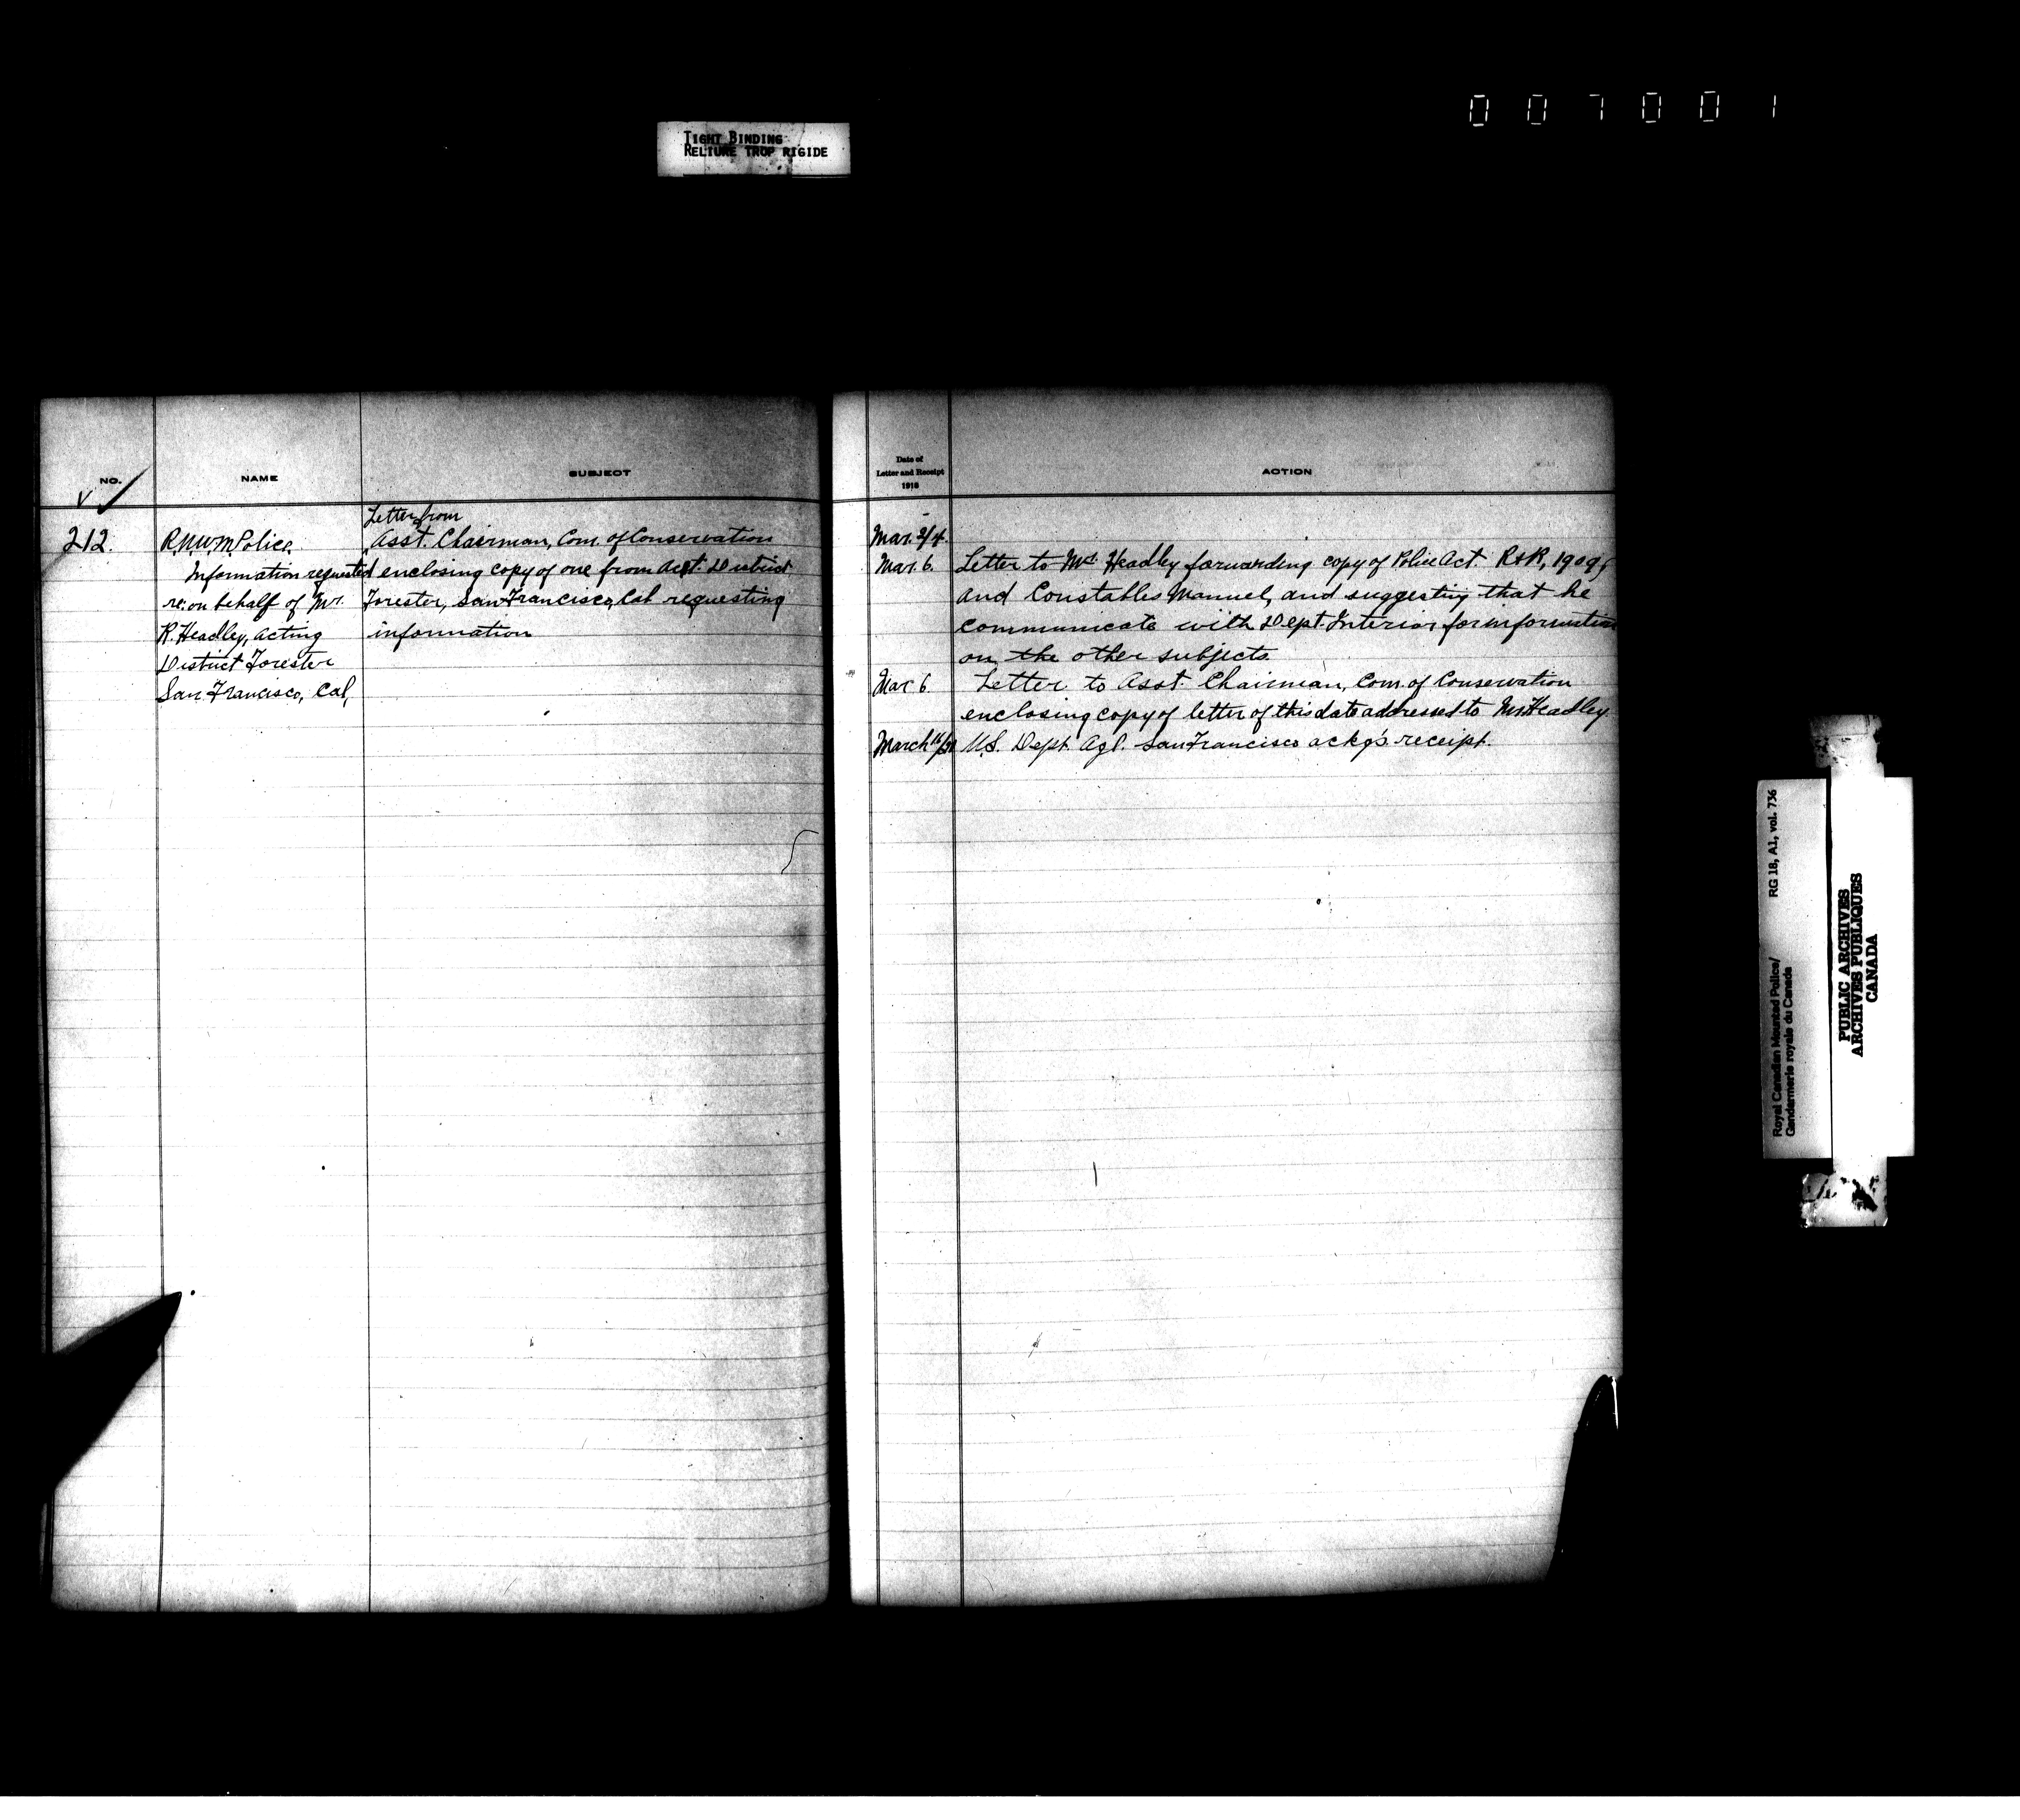 007001
TIGHT BINDING
RELIURE TROP RIGIDE
NO.
NAME
SUBJECT
212.
R.N.W.M. Police.
Information requested
re: on behalf of Mr.
R. Headley, acting
District Forester
San Francisco, Cal,
Letter from
Asst. Chairman, Com. of Conservation
enclosing copy of one from District
Forester, San Francisco, Cal requesting
information
Date of
Letter and Receipt
1918
ACTION
Mar. 2/4.
Mar. 6. Letter to Mr. Headley forwarding copy of Police Act. R&R, 1909,
and Constables Manuel, and suggesting that he
communicate with Dept. Interior for information
on the other subjects.
Mar. 6 Letter to Asst. Chairman, Com. of Conservation
enclosing copy of letter of this date addressed to Mr Headley.
March U.S. Dept. Agl. San Francisco ackg's receipt.
Royal Canadian Mounted Police/
Gendarmerie royale du Canada
RG 18, A1, vol. 736
PUBLIC ARCHIVES
ARCHIVES PUBLIQUES
CANADA